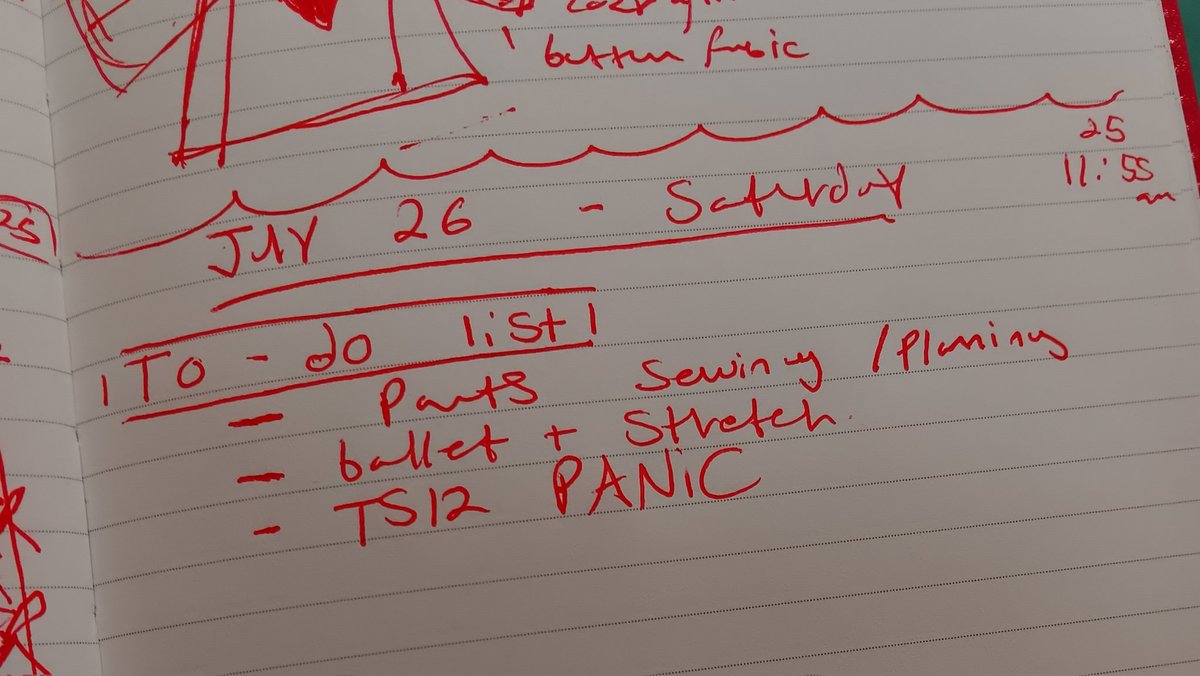 25
11:55
am
JULY 26 - Saturday
To - do list
- Pants Sewing / Planning
- ballet + Stretch.
- TS12 PANiC